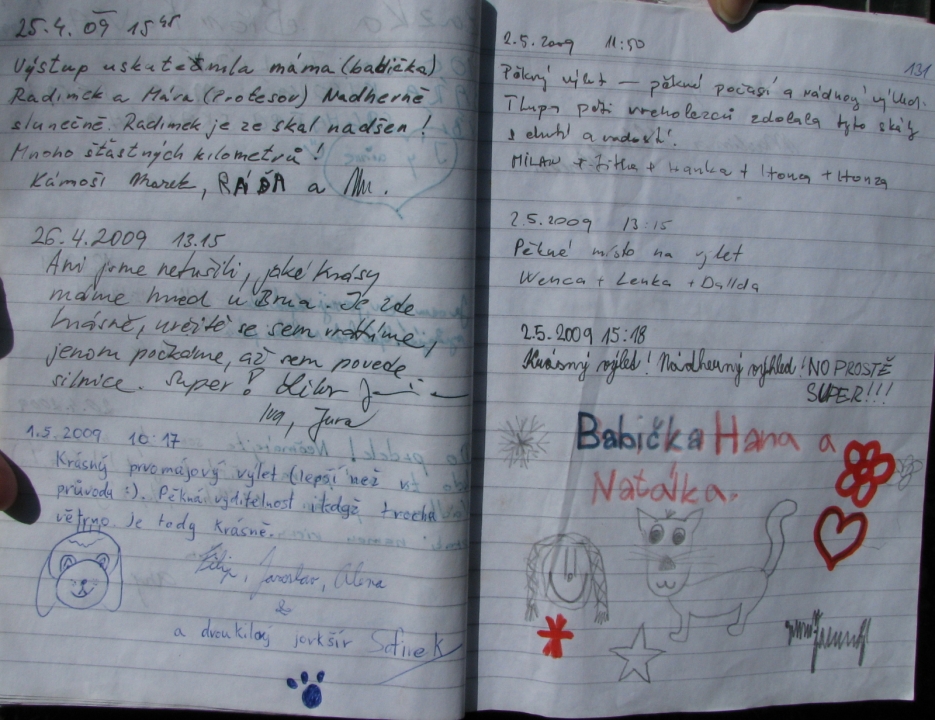 25.4. 09 15⁴⁵
Výstup uskutečnila máma (babička)
Radimek a Mára (Profesor) Nadherně
slunečně. Radimek je ze skal nadšen!
Mnoho šťastných kilometrů!
Kámoši Marek, RÁĎA a
26.4.2009 13.15
Ani jsme netušili, jaké krásy
máme hned u Brna. Je zde
krásně, určitě se sem vrátíme,
jenom počkáme, až sem povede
silnice. Super!
Iva, Jura
1.5.2009 10:17
Krásný prvomájový výlet (lepší než
průvody :). Pěkná vyditelnost, ikdyž trochu
větrno. Je tady krásně.
Filip, Jaroslav, Alena
&
a dvoukilový jorkšír Safírek
131
2.5.2009 11:50
Pěkný výlet — pěkné počasí a
Tlupa pěti vrcholezců zdolala tyto skály
s chutí a radostí.
MILAN + Jitka + Hanka + + Honza
2.5.2009 13:15
Pěkné místo na výlet
Wenca + Lenka +
2.5.2009 15:18
Krásný výlet! Nádherný výhled! NO PROSTĚ
SUPER!!!
Babička Hana a
Natálka.